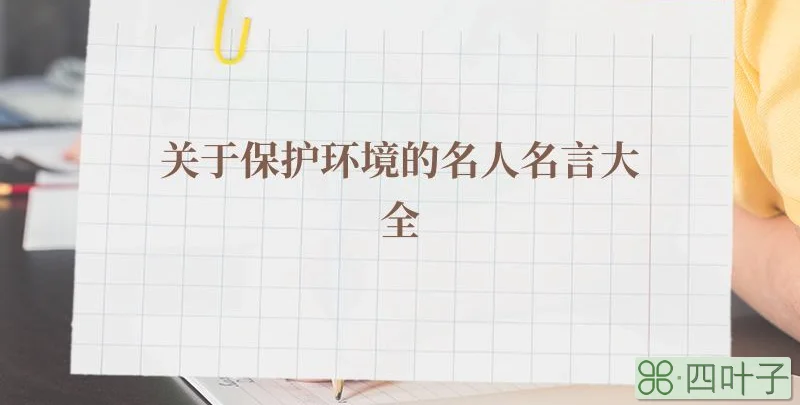 关于保护环境的名人名言大
全
⌘·四叶子